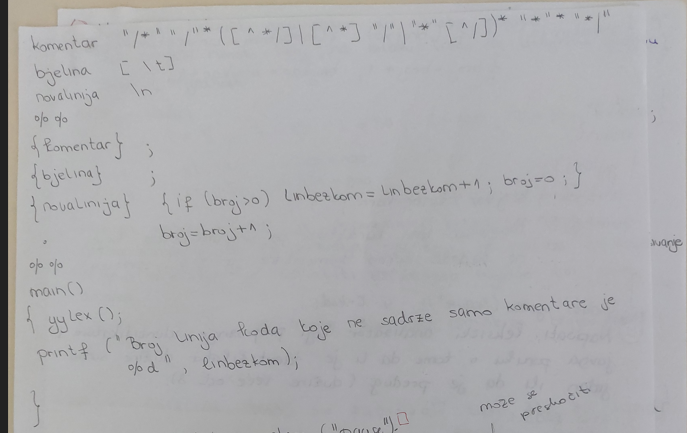 komentar "/*" "/"*([^*/]|[^*]"/"|"*"[^/])* "*"* "*/"
bjelina [ \t]
novalinija \n
%%
{komentar} ;
{bjelina} ;
{novalinija} {if (broj>0) linbezkom=linbezkom+1; broj=0;}
. broj=broj+1;
%%
main()
{ yylex();
printf ("Broj linija koda koje ne sadrze samo komentare je
%d", linbezkom);
}
može se
preskočiti